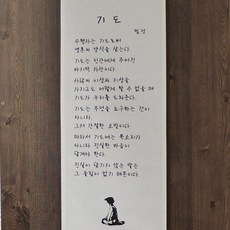 기 도
법정
수행자는 기도로써
영혼의 양식을 삼는다.
기도는 인간에게 주어진
마지막 자산이다.
사람의 이성과 지성을
가지고도 어떻게 할 수 없을 때
기도가 우리를 도와준다.
기도는 무엇을 요구하는 것이
아니라,
그저 간절한 소망이다.
따라서 기도에는 목소리가
아니라 진실한 마음이
담겨야 한다.
진실이 담기지 않은 말은
그 울림이 없기 때문이다.